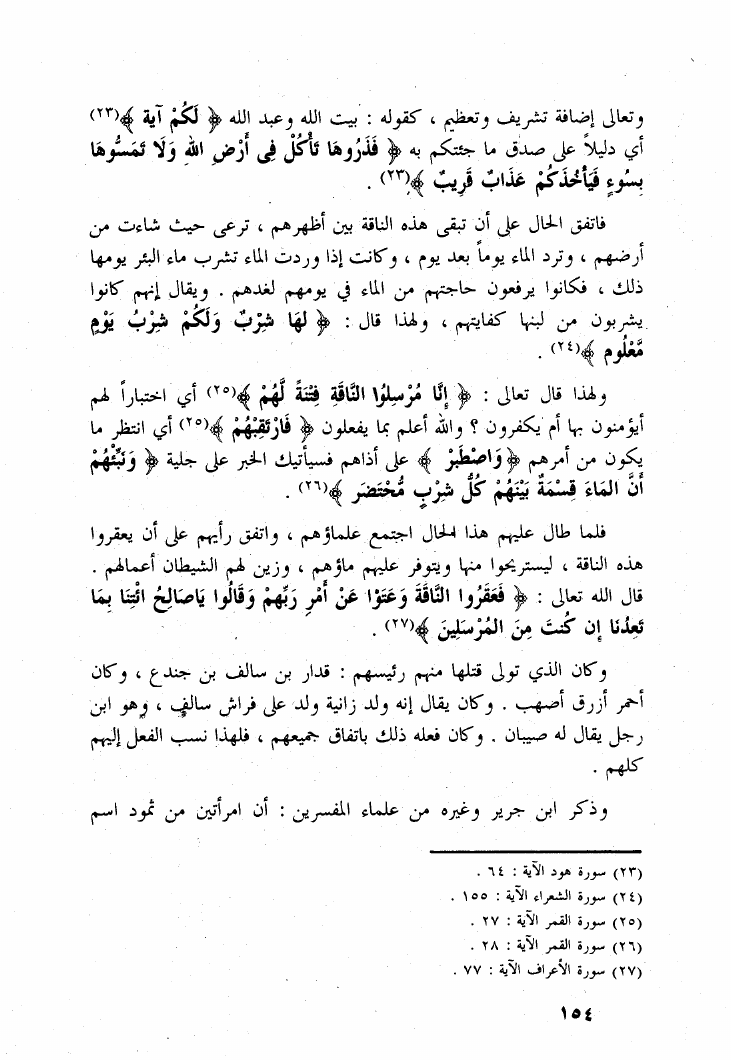 وتعالى إضافة تشريف وتعظيم ، كقوله : بيت الله وعبد الله ﴿ لَكُمْ آية ﴾(٢٣)
أي دليلاً على صدق ما جئتكم به ﴿ فَذَرُوهَا تَأْكُلْ فِي أَرْضِ اللهِ وَلَا تَمَسُّوهَا
بِسُوءٍ فَيَأْخُذَكُمْ عَذَابٌ قَرِيبٌ ﴾(٢٣) .
فاتفق الحال على أن تبقى هذه الناقة بين أظهرهم ، ترعى حيث شاءت من
أرضهم ، وترد الماء يوماً بعد يوم ، وكانت إذا وردت الماء تشرب ماء البئر يومها
ذلك ، فكانوا يرفعون حاجتهم من الماء في يومهم لغدهم . ويقال إنهم كانوا
يشربون من لبنها كفايتهم ، ولهذا قال : ﴿ لَهَا شِرْبٌ وَلَكُمْ شِرْبُ يَوْمٍ
مَّعْلُوم ﴾(٢٤) .
ولهذا قال تعالى : ﴿ إِنَّا مُرْسِلُوا النَّاقَةِ فِتْنَةً لَّهُمْ ﴾(٢٥) أي اختباراً لهم
أيؤمنون بها أم يكفرون ؟ والله أعلم بما يفعلون ﴿ فَارْتَقِبْهُمْ ﴾(٢٥) أي انتظر ما
يكون من أمرهم ﴿ وَاصْطَبَرْ ﴾ على أذاهم فسيأتيك الخبر على جلية ﴿ وَنَبِّئْهُمْ
أَنَّ المَاءَ قِسْمَةٌ بَيْنَهُمْ كُلُّ شِرْبٍ مُّحْتَضَر ﴾(٢٦) .
فلما طال عليهم هذا الحال اجتمع علماؤهم ، واتفق رأيهم على أن يعقروا
هذه الناقة ، ليستريحوا منها ويتوفر عليهم ماؤهم ، وزين لهم الشيطان أعمالهم .
قال الله تعالى : ﴿ فَعَقَرُوا النَّاقَةَ وَعَتَوْا عَنْ أَمْرِ رَبِّهِمْ وَقَالُوا يَاصَالِحُ ائْتِنَا بِمَا
تَعِدُنَا إِن كُنتَ مِنَ المُرْسَلِينَ ﴾(٢٧) .
وكان الذي تولى قتلها منهم رئيسهم : قدار بن سالف بن جندع ، وكان
أحمر أزرق أصهب . وكان يقال إنه ولد زانية ولد على فراش سالف ، وهو ابن
رجل يقال له صيبان . وكان فعله ذلك باتفاق جميعهم ، فلهذا نسب الفعل إليهم
كلهم .
وذكر ابن جرير وغيره من علماء المفسرين : أن امرأتين من ثمود اسم
(٢٣) سورة هود الآية : ٦٤ .
(٢٤) سورة الشعراء الآية : ١٥٥ .
(٢٥) سورة القمر الآية : ٢٧ .
(٢٦) سورة القمر الآية : ٢٨ .
(٢٧) سورة الأعراف الآية : ٧٧ .
١٥٤